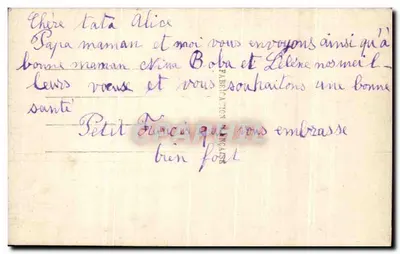 Chère tata Alice
Papa maman et moi vous envoyons ainsi qu'à
bonne maman Nina Boba et Lélène nos meil-
leurs vœuse et vous souhaitons une bonne
santé
Petit Francis qui vous embrasse
bien fort
FABRICATION FRANÇAISE